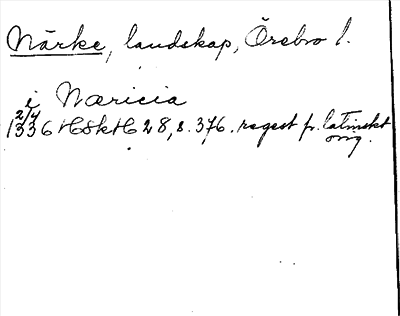 Närke, landskap, Örebro l.
i Næricia
2/4
1336 HSkH 28, s. 376. regest fr. latinskt
orig.